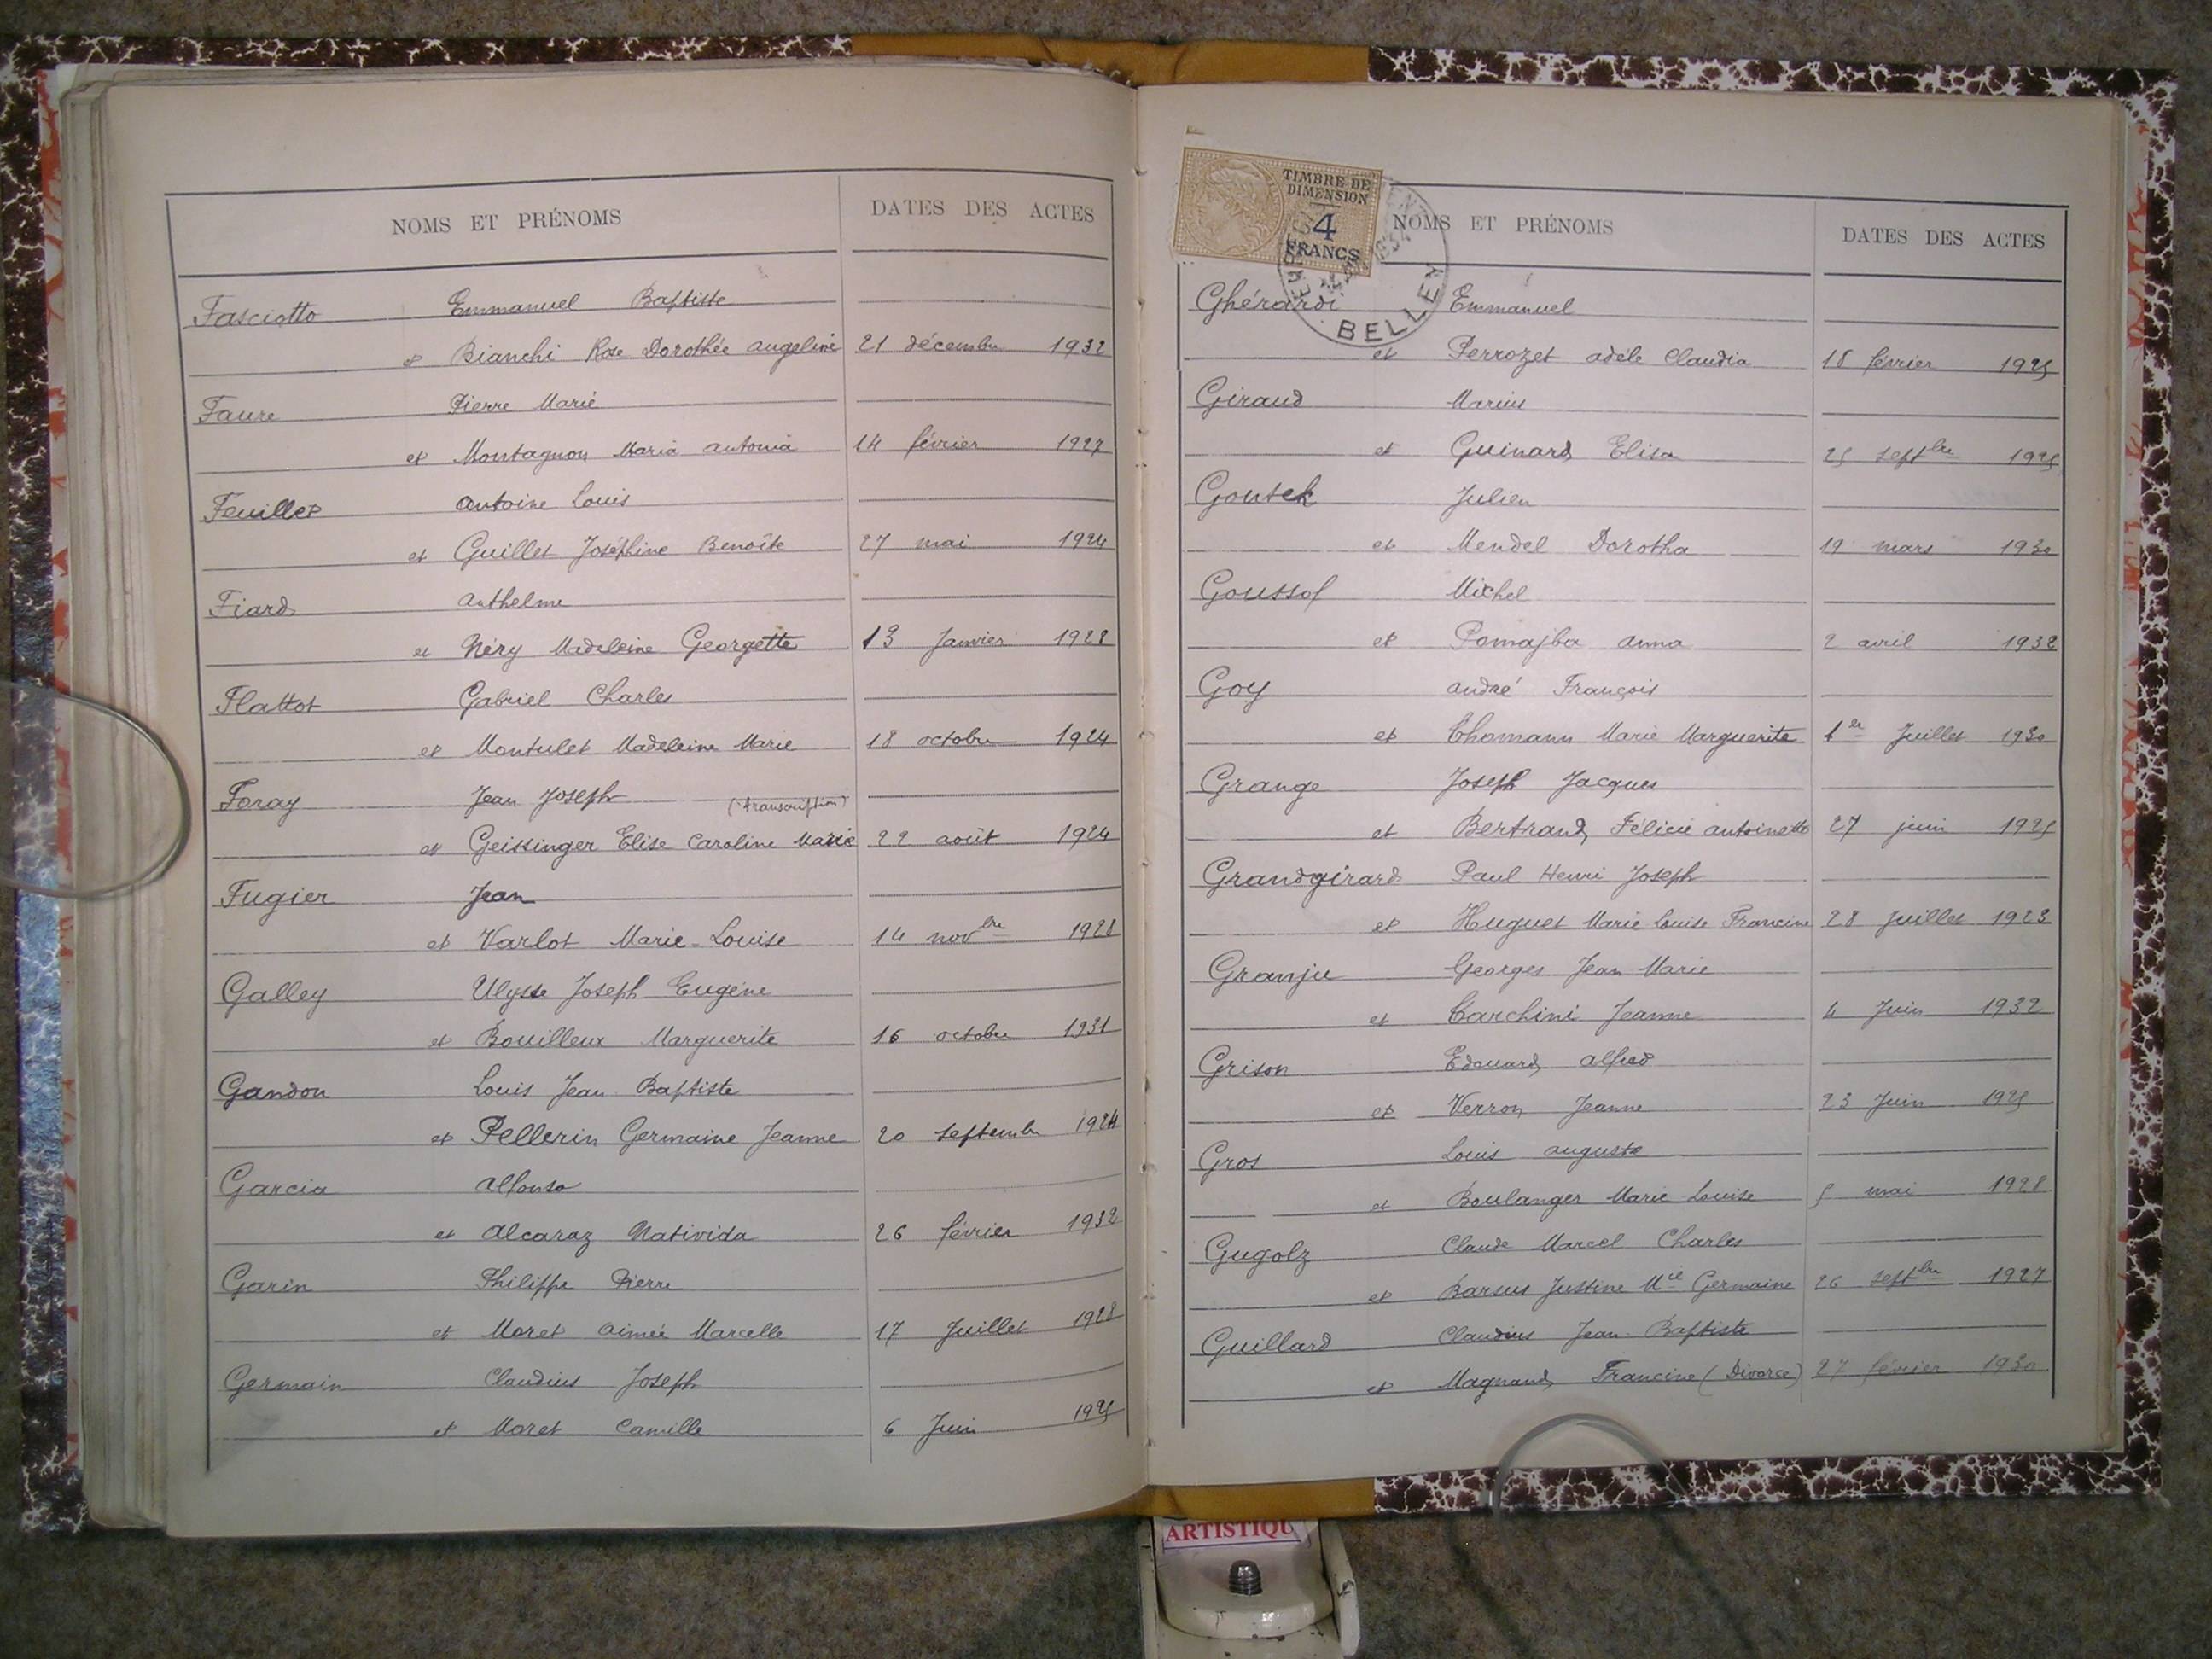 NOMS ET PRÉNOMS DATES DES ACTES
Fasciotto Emmanuel Baptiste
et Bianchi Rose Dorothée Angeline 21 décembre 1932
Faure Pierre Marie
et Montagnon Maria Antonia 14 février 1927
Feuillet Antoine Louis
et Guillet Joséphine Benoîte 27 mai 1924
Fiard Anthelme
et Néry Madeleine Georgette 13 Janvier 1928
Flattot Gabriel Charles
et Montulet Madeleine Marie 18 octobre 1924
Foray Jean Joseph (transcription)
et Geissinger Elise Caroline Marie 22 août 1924
Fugier Jean
et Varlot Marie-Louise 14 novbre 1928
Galley Ulysse Joseph Eugène
et Bouilleux Marguerite 16 octobre 1931
Gandon Louis Jean Baptiste
et Pellerin Germaine Jeanne 20 septembre 1924
Garcia Alfonso
et Alcaraz Nativida 26 février 1932
Garin Philippe Pierre
et Moret Aimée Marcelle 17 Juillet 1928
Germain Claudius Joseph
et Moret Camille 6 Juin 1925
TIMBRE DE
DIMENSION
4
FRANCS
BELLEY
NOMS ET PRÉNOMS DATES DES ACTES
Ghérardi Emmanuel
et Perrozet Adèle Claudia 18 février 1925
Giraud Marius
et Guinard Elisa 25 septbre 1925
Goutek Julien
et Mendel Dorotha 19 mars 1930
Goussof Michel
et Pomajba Anna 2 avril 1932
Goy André François
et Thomann Marie Marguerite 1er Juillet 1930
Grange Joseph Jacques
et Bertrand Félicie Antoinette 27 juin 1925
Grandgirard Paul Henri Joseph
et Huguet Marie Louise Francine 28 juillet 1923
Granju Georges Jean Marie
et Carchini Jeanne 4 Juin 1932
Grison Edouard Alfred
et Verron Jeanne 23 Juin 1925
Gros Louis Auguste
et Boulanger Marie Louise 5 mai 1928
Gugolz Claude Marcel Charles
et Barsus Justine Mie Germaine 26 septbre 1927
Guillard Claudius Jean-Baptiste
et Magnand Francine (Divorce) 27 février 1930
ARTISTIQU